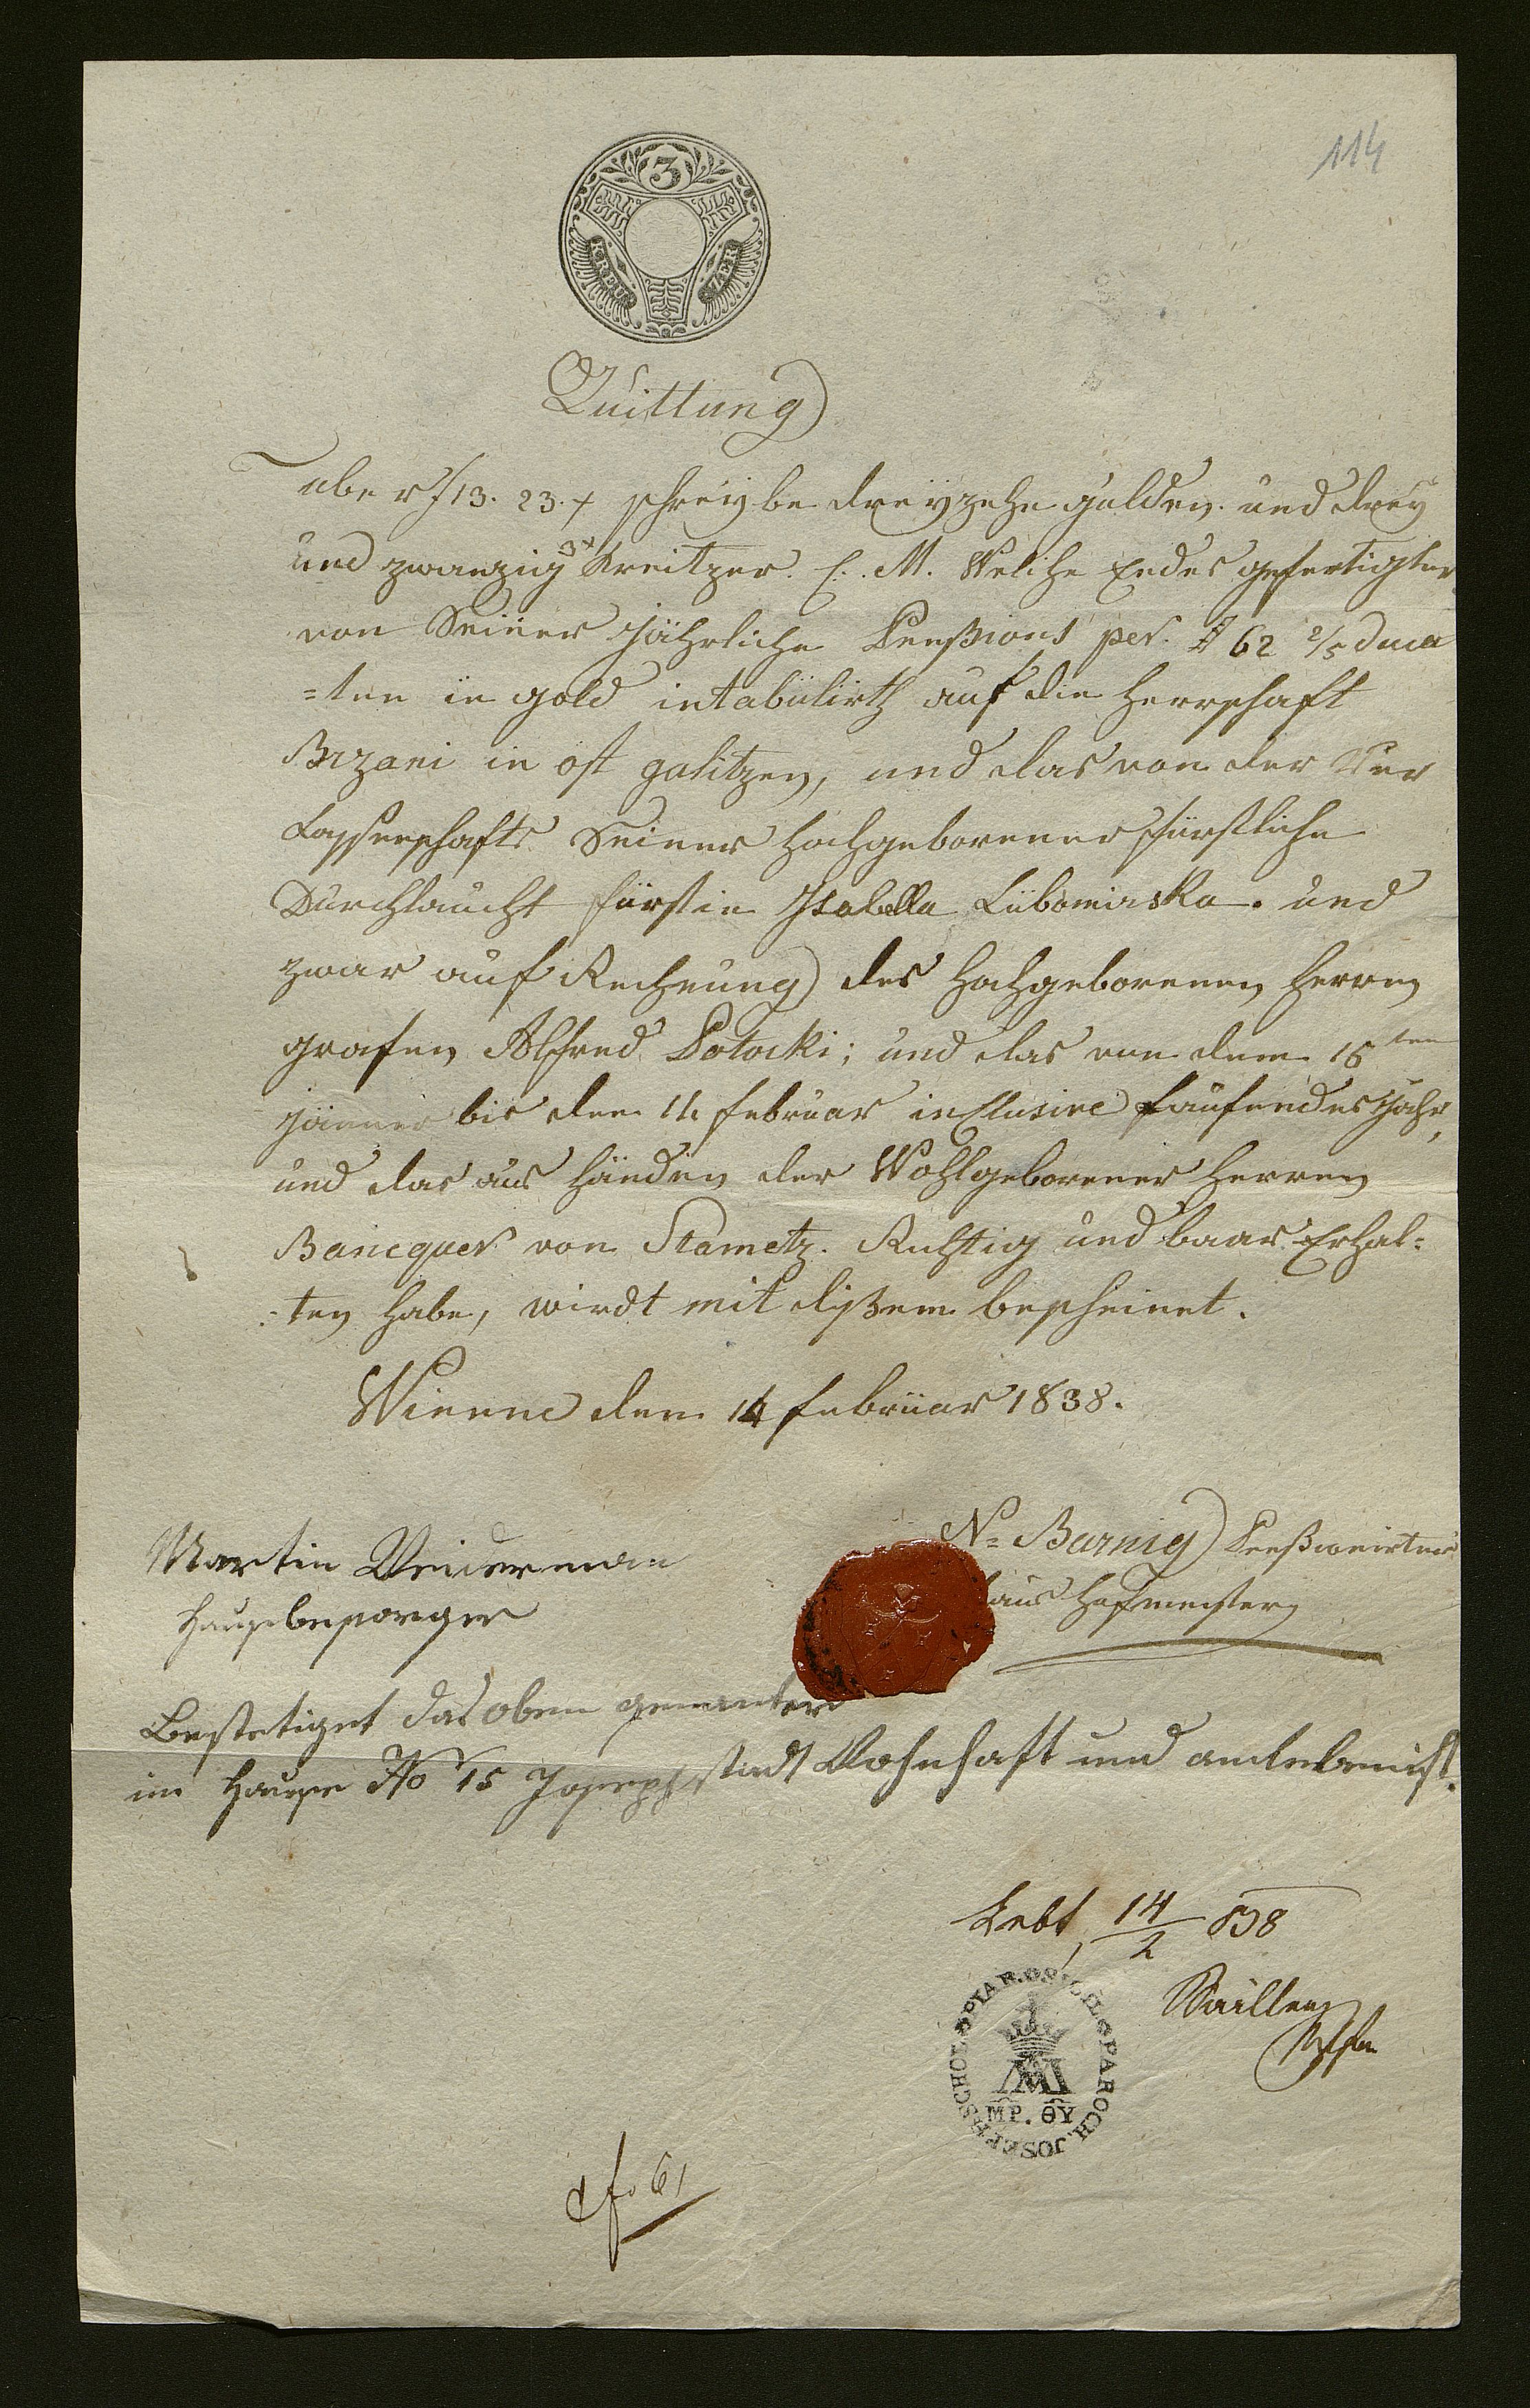 114
3
KREU ZER
Quittung
Uber f 13. 23. x schreybe dreyzehn gulden. und drey
und zwanzig 3x Kreitzer. C. M. Welche Endes gefertigter
von Seiner Jährliche Penßions per. # 62 2/5 duca
=ten in gold intabulirth auf die Herrschaft
Brzani in ost galitzen, und das von der Ver
Lassenschafts Seiner Hochgeborener fürstliche
Durchlaucht fürstin Isabella Lübomirska. und
zwar auf Rechnung des Hochgeborenen Herren
grafen Alfred Potocki; und das von dem 15ten
Jänner bis den 14 februar inClusive laufendes Jahr,
und das aus Händen der Wohlgeborener Herren
Bancquer von Stametz. Richtig und baar Erhal=
=ten habe, wirdt mit dißem bescheinet.
Wienne den 14 februar 1838.
N= Burnig Penßionirter
Haus Hofmeister
Martin Weiderman
Hausbesorger
Bestetiget das oben genanter
im Hause No 15 Josephstadt Wohnhaft und amleben ist.
Lebt, 14/2 838
SCHOL. PIAR. PAROCH. JOSEPH
MP. ΘY
61